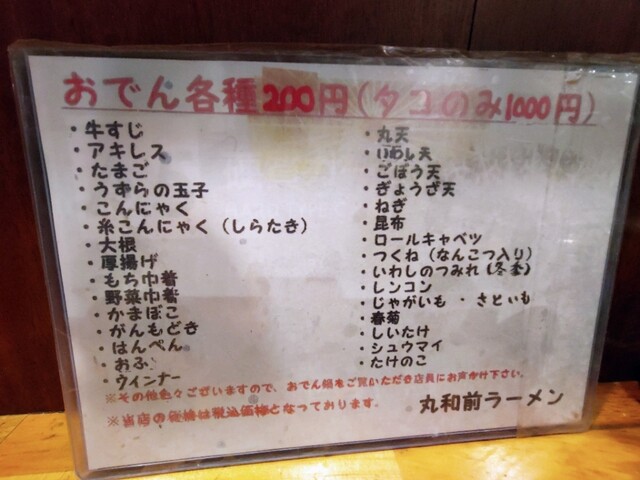 おでん各種200円(タコのみ1000円)
・牛すじ
・アキレス
・たまご
・うずらの玉子
・こんにゃく
・糸こんにゃく(しらたき)
・大根
・厚揚げ
・もち巾着
・野菜巾着
・かまぼこ
・がんもどき
・はんぺん
・おふ
・ウインナー
・丸天
・いわし天
・ごぼう天
・ぎょうざ天
・ねぎ
・昆布
・ロールキャベツ
・つくね(なんこつ入り)
・いわしのつみれ(冬季)
・レンコン
・じゃがいも ・さといも
・春菊
・しいたけ
・シュウマイ
・たけのこ
※その他色々ございますので、おでん鍋をご覧いただき店員にお声かけ下さい。
※当店の価格は税込価格となっております。
丸和前ラーメン